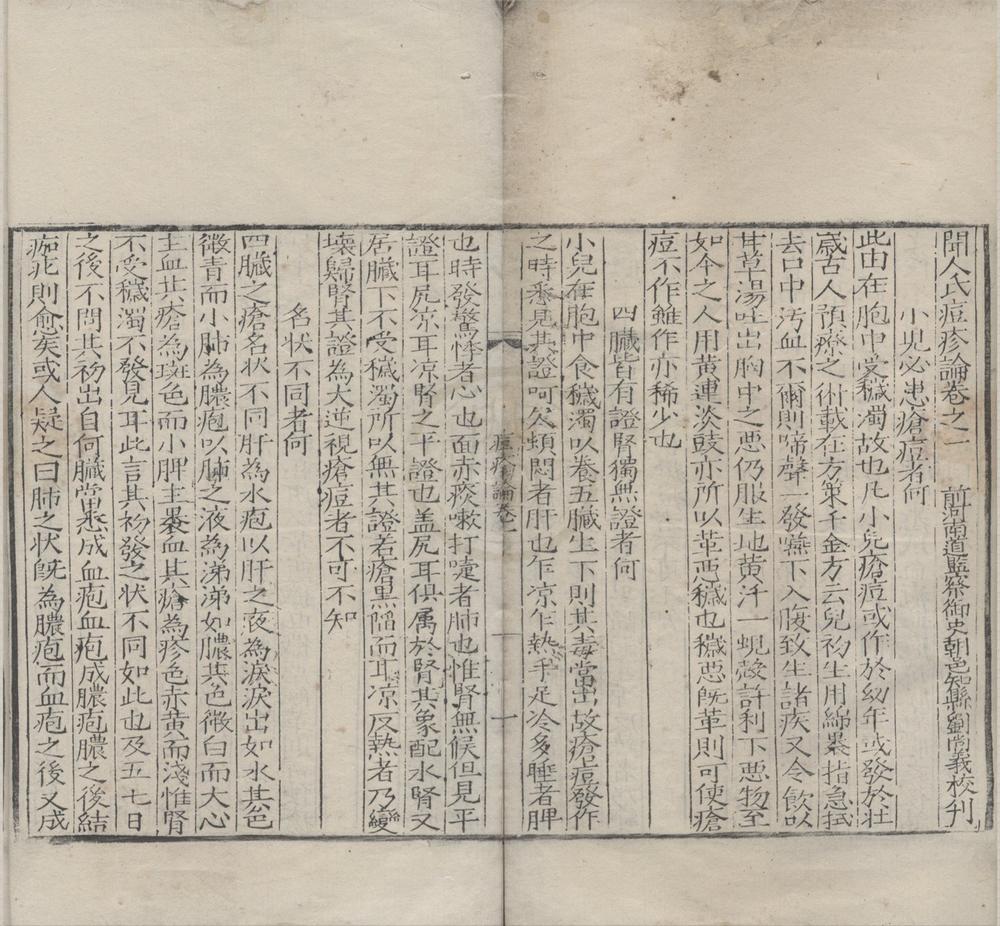 聞人氏痘疹論卷之一　前河南道監察御史朝邑知縣劉尚義校刊
小児必患瘡痘者何
此由在胞中受穢濁故也凡小兒瘡痘或作於幼年或發於壯
歲古人預療之術載在方策千金方云兒初生用綿裹指急拭
去口中汚血不爾則啼聲一發嚥下入腹致生諸疾又令飲以
甘草湯吐出胸中之惡仍服生地黄汗一蜆殼許利下惡物至
如今之人用黄連淡豉亦所以革惡穢也穢惡旣革則可使瘡
痘不作雖作亦稀少也
四臟皆有證腎獨無證者何
小兒在胞中食穢濁以養五臟生下則其毒當出故瘡痘發作
之時悉見其證呵欠頓悶者肝也乍凉乍熱手足冷多睡者脾
痘疹論卷一
一
也時發驚悸者心也面赤痰嗽打嚏者肺也惟腎無候但見平
證耳尻凉耳凉腎之平證也盖尻耳俱属於腎其象配水腎又
居臟下不受穢濁所以無其證若瘡黒䧟而耳凉反熱者乃變
壞歸腎其證為大逆視瘡痘者不可不知
名状不同者何
四臟之瘡名状不同肝為水疱以肝之液為淚淚出如水其色
微青而小肺為膿疱以肺之液為涕涕如膿其色微白而大心
主血其瘡為斑色而小脾主裹血其瘡為疹色赤黄而淺惟腎
不受穢濁不發見耳此言其初發之状不同如此也及五七日
之後不問其初出自何臟當悉成血疱血疱成膿疱膿之後結
痂疕則愈矣或人疑之曰肺之状旣為膿疱而血疱之後又成